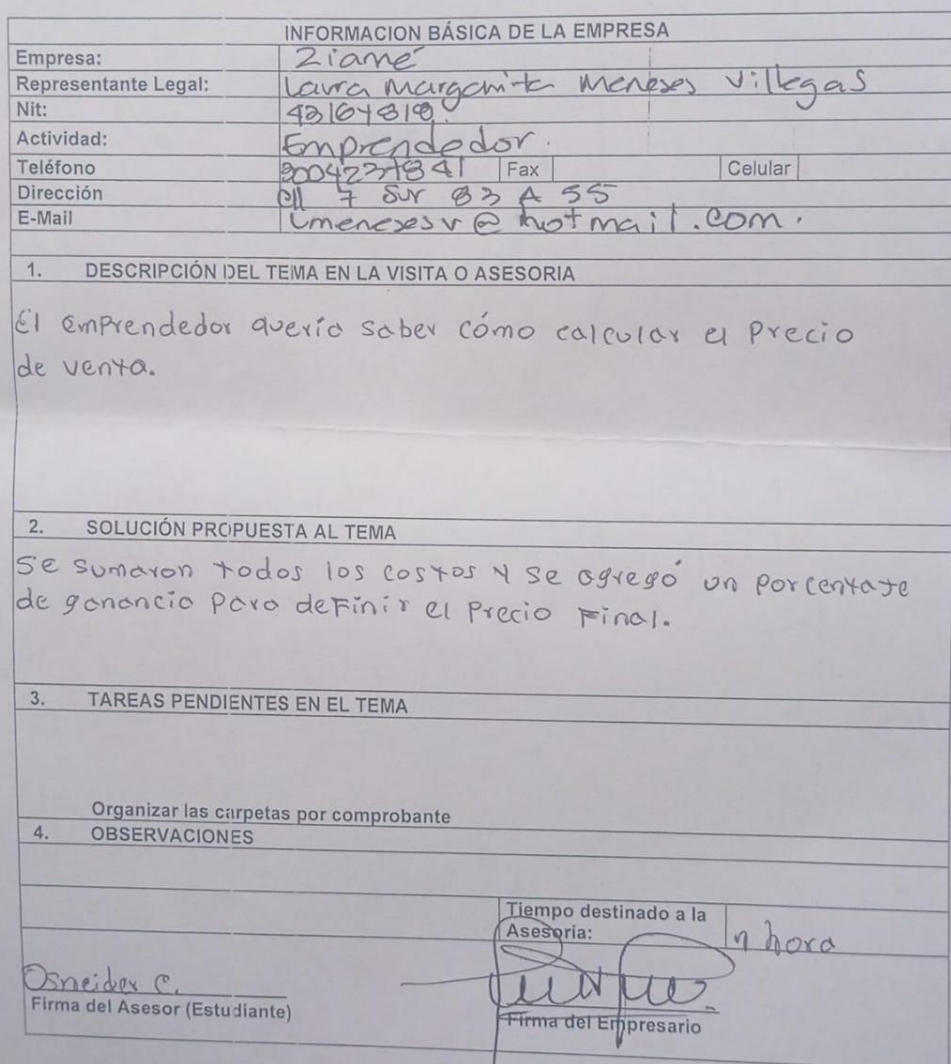 INFORMACION BÁSICA DE LA EMPRESA
Empresa: Ziamé
Representante Legal: Laura Margarita Meneses Villegas
Nit: 43164819.
Actividad: Emprendedor.
Teléfono 3004237841 Fax Celular
Dirección Cll 7 Sur 83 A 55
E-Mail lmenesesv@hotmail.com.
1. DESCRIPCIÓN DEL TEMA EN LA VISITA O ASESORIA
El emprendedor quería saber cómo calcular el Precio
de venta.
2. SOLUCIÓN PROPUESTA AL TEMA
Se sumaron todos los costos y se agregó un porcentaje
de ganancia para definir el Precio Final.
3. TAREAS PENDIENTES EN EL TEMA
Organizar las carpetas por comprobante
4. OBSERVACIONES
Tiempo destinado a la
Asesoría: 1 hora
Osneider C.
Firma del Asesor (Estudiante)
Firma del Empresario